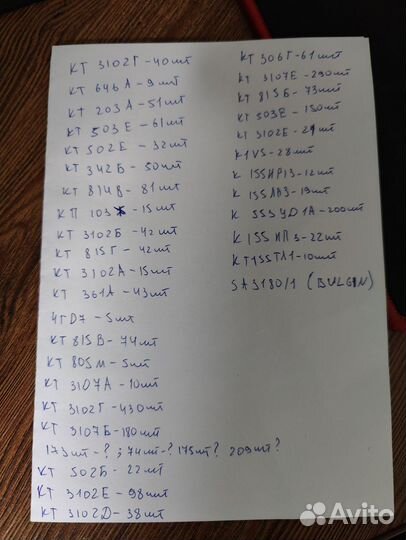 КТ 3102Г - 40шт
КТ 646А - 9шт
КТ 203А - 51шт
КТ 503Е - 61шт
КТ 502Е - 32шт
КТ 342Б - 50шт
КТ 814В - 81шт
КП 103 - 15шт
КТ 3102Б - 42шт
КТ 815Г - 42шт
КТ 3102А - 15шт
КТ 361А - 43шт
4ГД7 - 5шт
КТ 815В - 74шт
КТ 805М - 5шт
КТ 3107А - 10шт
КТ 3102Г - 430шт
КТ 3107Б - 180шт
173шт - ? ; 74шт - ? 175шт? 209шт?
КТ 502Б - 22шт
КТ 3102Е - 98шт
КТ 3102D - 38шт
КТ 306Г - 61шт
КТ 3107Е - 290шт
КТ 815Б - 73шт
КТ 503Е - 150шт
КТ 3102Е - 21шт
К1VS - 28шт
К 155ИР13 - 12шт
К 155ЛА3 - 19шт
К 553УД1А - 200шт
К 155ИП3 - 22шт
КТ155ТЛ1 - 10шт
SA3180/1 (BULGIN)
Avito